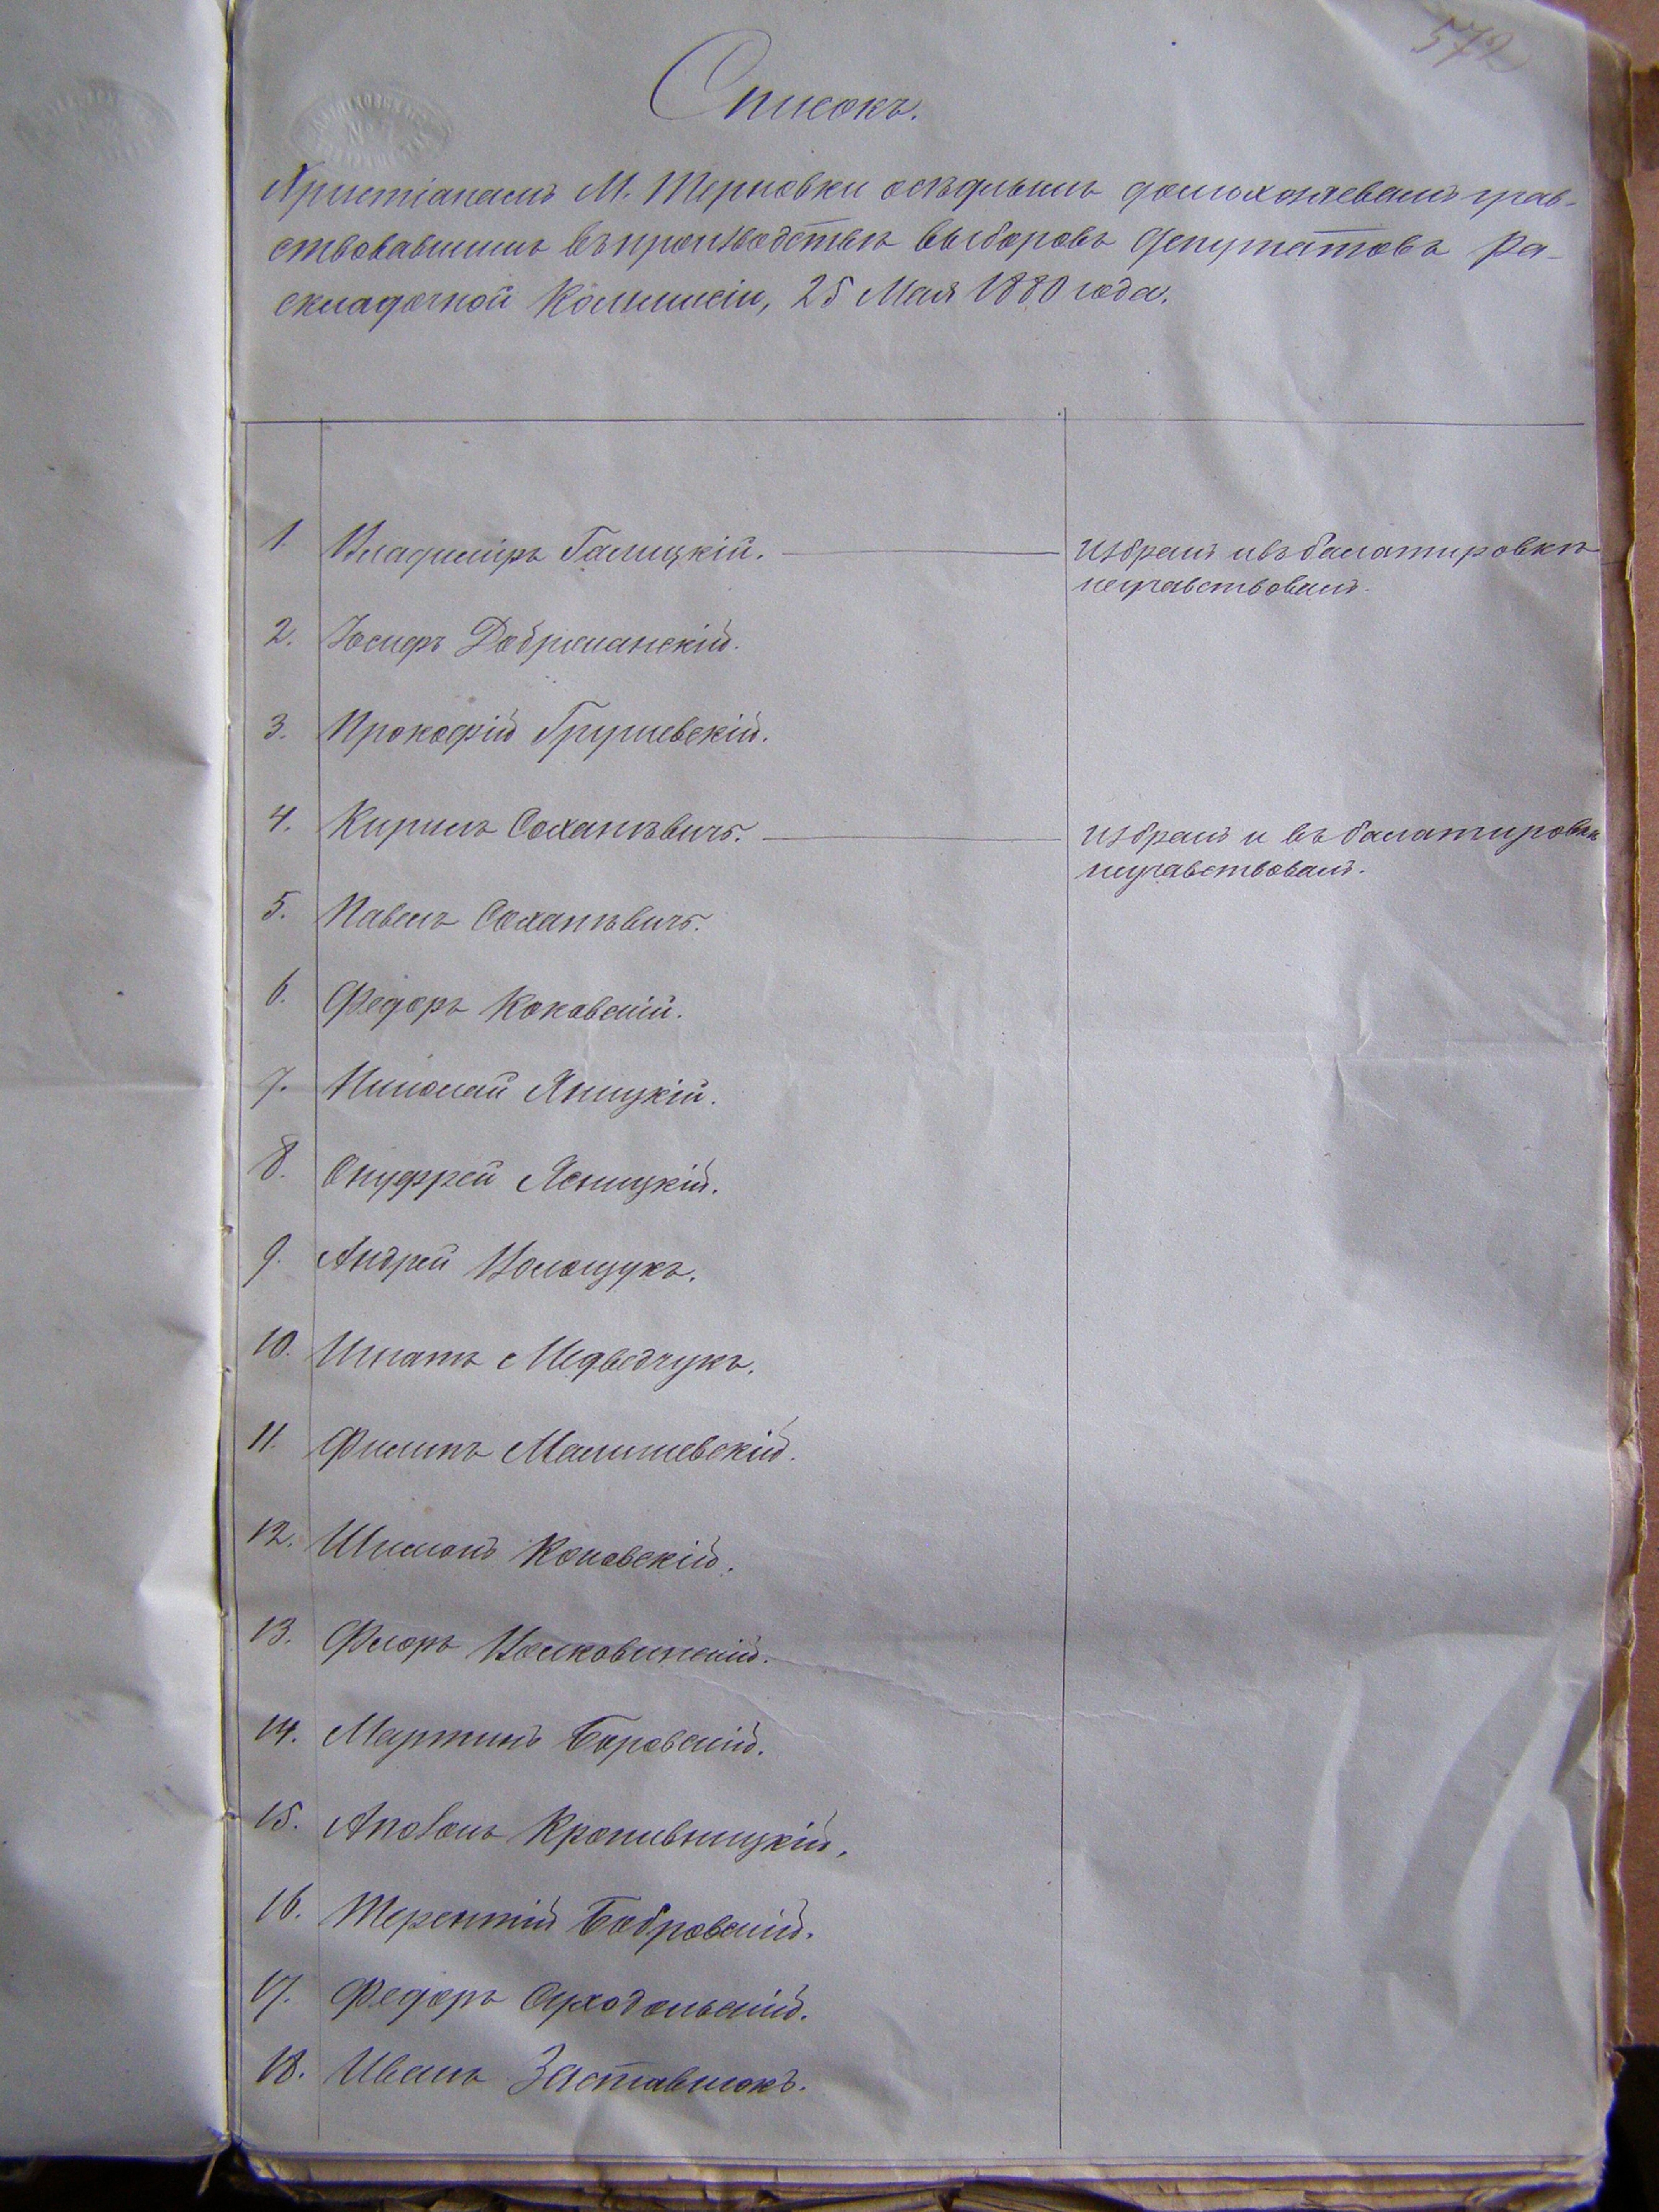 572
Списокъ.
Христіанамъ М. Терновки осѣдлымъ домохозяевамъ учав-
ствовавшимъ въ производствѣ выборовъ депутатовъ Ра-
складочной Коммисіи, 25 Мая 1880 года.
1. Владиміръ Галицкій. избранъ и въ балатировкѣ
неучавствовалъ.
2. Іосифъ Добрыманскій.
3. Прокофій Грушевскій.
4. Кирилъ Соханѣвичъ. избранъ и въ балатировкѣ
неучавствовалъ.
5. Павелъ Соханѣвичъ.
6. Федоръ Коковскій.
7. Николай Яницкій.
8. Онуфрей Ясницкій.
9. Андрей Волощукъ.
10. Игнатъ Медведчукъ.
11. Филипъ Малишевскій.
12. Шимонъ Коковскій.
13. Флоръ Волковинскій.
14. Мартинъ Боровскій.
15. Аполонъ Кропивницкій.
16. Терентій Бобровскій.
17. Федоръ Суходольскій.
18. Иванъ Заставнюкъ.